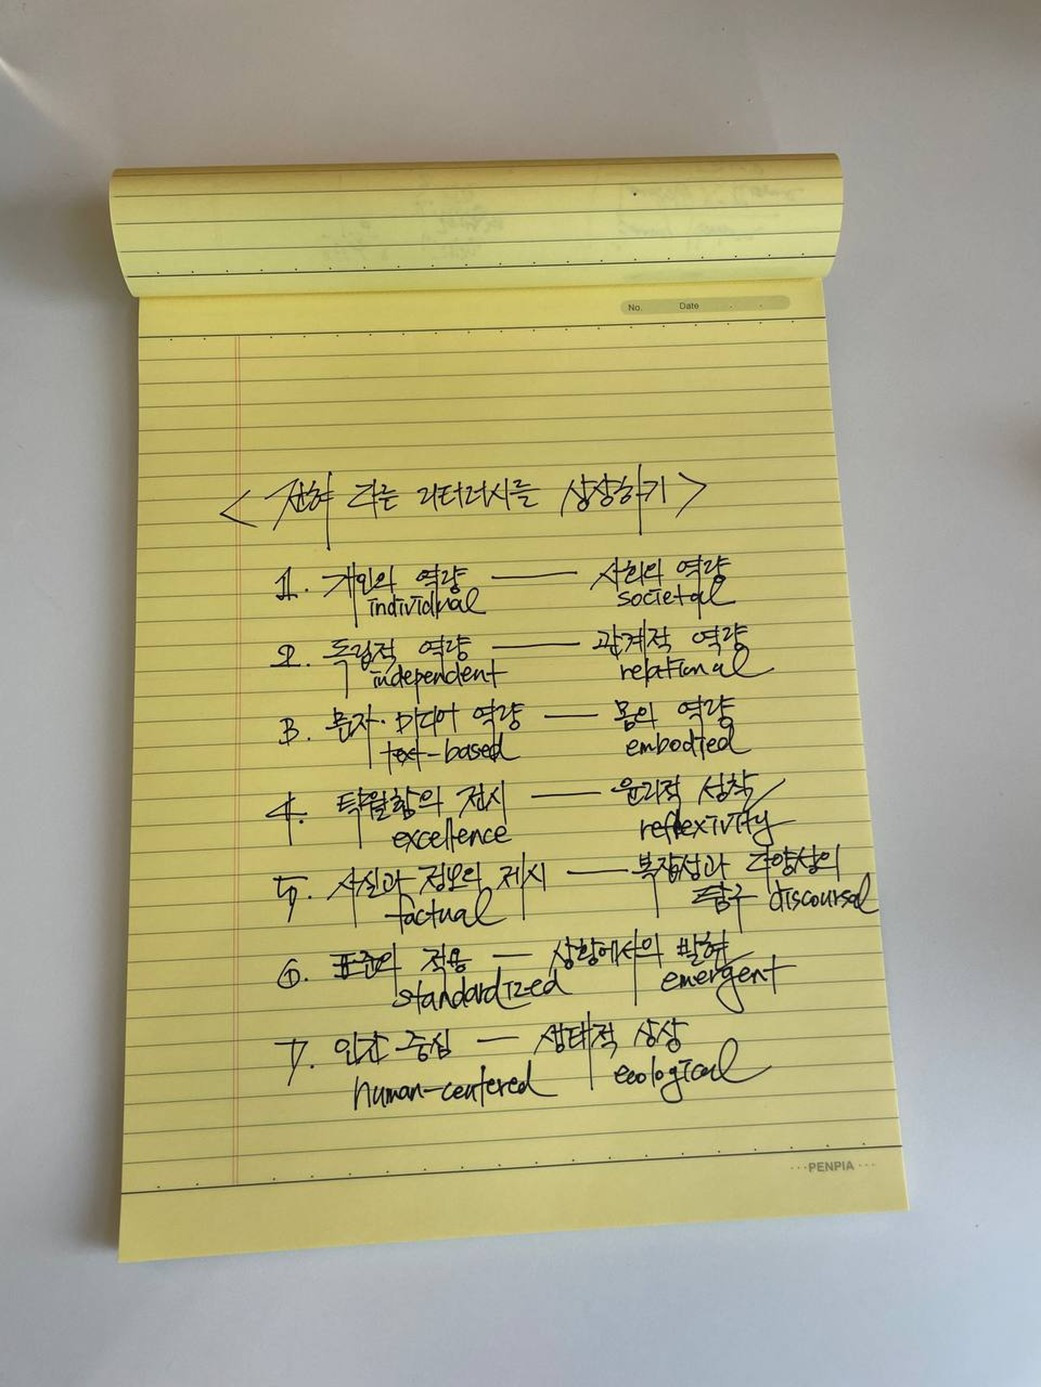 No. Date
<전혀 다른 리터러시를 상상하기>
1. 개인의 역량 — 사회의 역량
individual societal
2. 독립적 역량 — 관계적 역량
independent relational
3. 문자·미디어 역량 — 몸의 역량
text-based embodied
4. 탁월함의 전시 — 윤리적 성찰
excellence reflexivity
5. 사실과 정보의 제시 — 복잡성과 다양성의
factual 탐구 discoursal
6. 표준의 적용 — 상황에서의 발현
standardized emergent
7. 인간 중심 — 생태적 상상
human-centered ecological
PENPIA